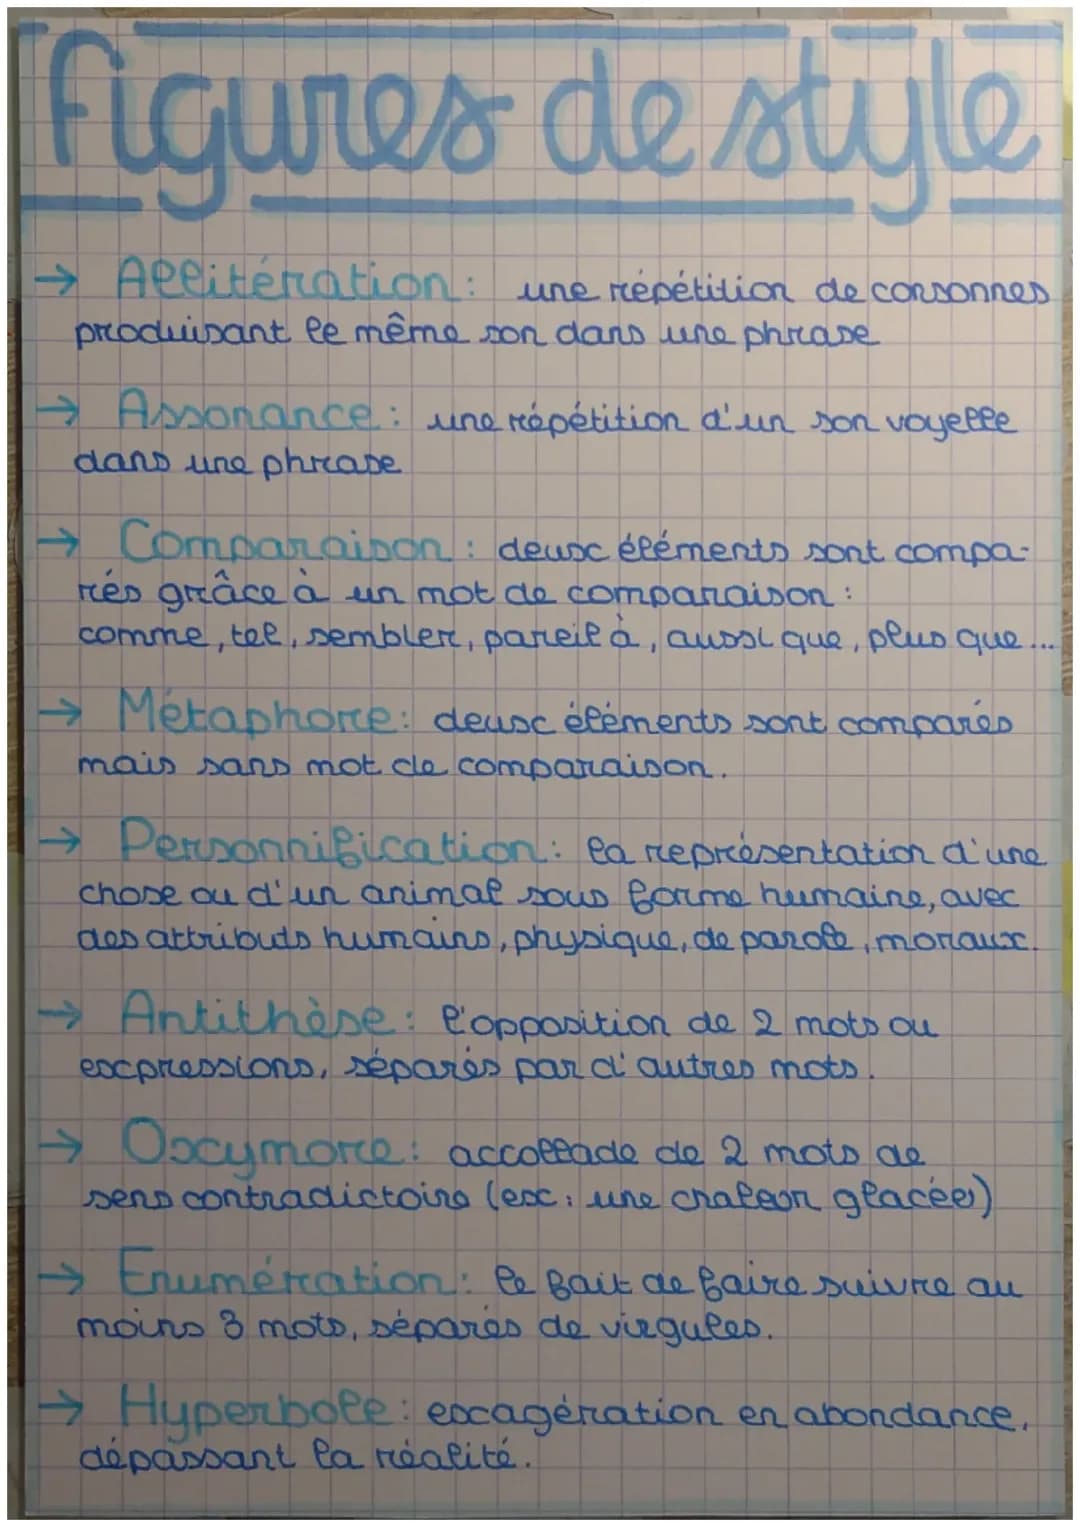 figures de style
→ Allitération : une répétition de consonnes
produisant le même son dans une phrase
→ Assonance : une répétition d'un son voyelle
dans une phrase
→ Comparaison : deux éléments sont compa-
rés grâce à un mot de comparaison :
comme, tel, sembler, pareil à, aussi que, plus que...
→ Métaphore : deux éléments sont comparés
mais sans mot de comparaison.
→ Personnification : la représentation d'une
chose ou d'un animal sous forme humaine, avec
des attributs humains, physique, de parole, moraux.
→ Antithèse : l'opposition de 2 mots ou
expressions, séparés par d'autres mots.
→ Oxymore : accollade de 2 mots de
sens contradictoire (ex : une chaleur glacée)
→ Enumération : le fait de faire suivre au
moins 3 mots, séparés de virgules.
→ Hyperbole : exagération en abondance,
dépassant la réalité.